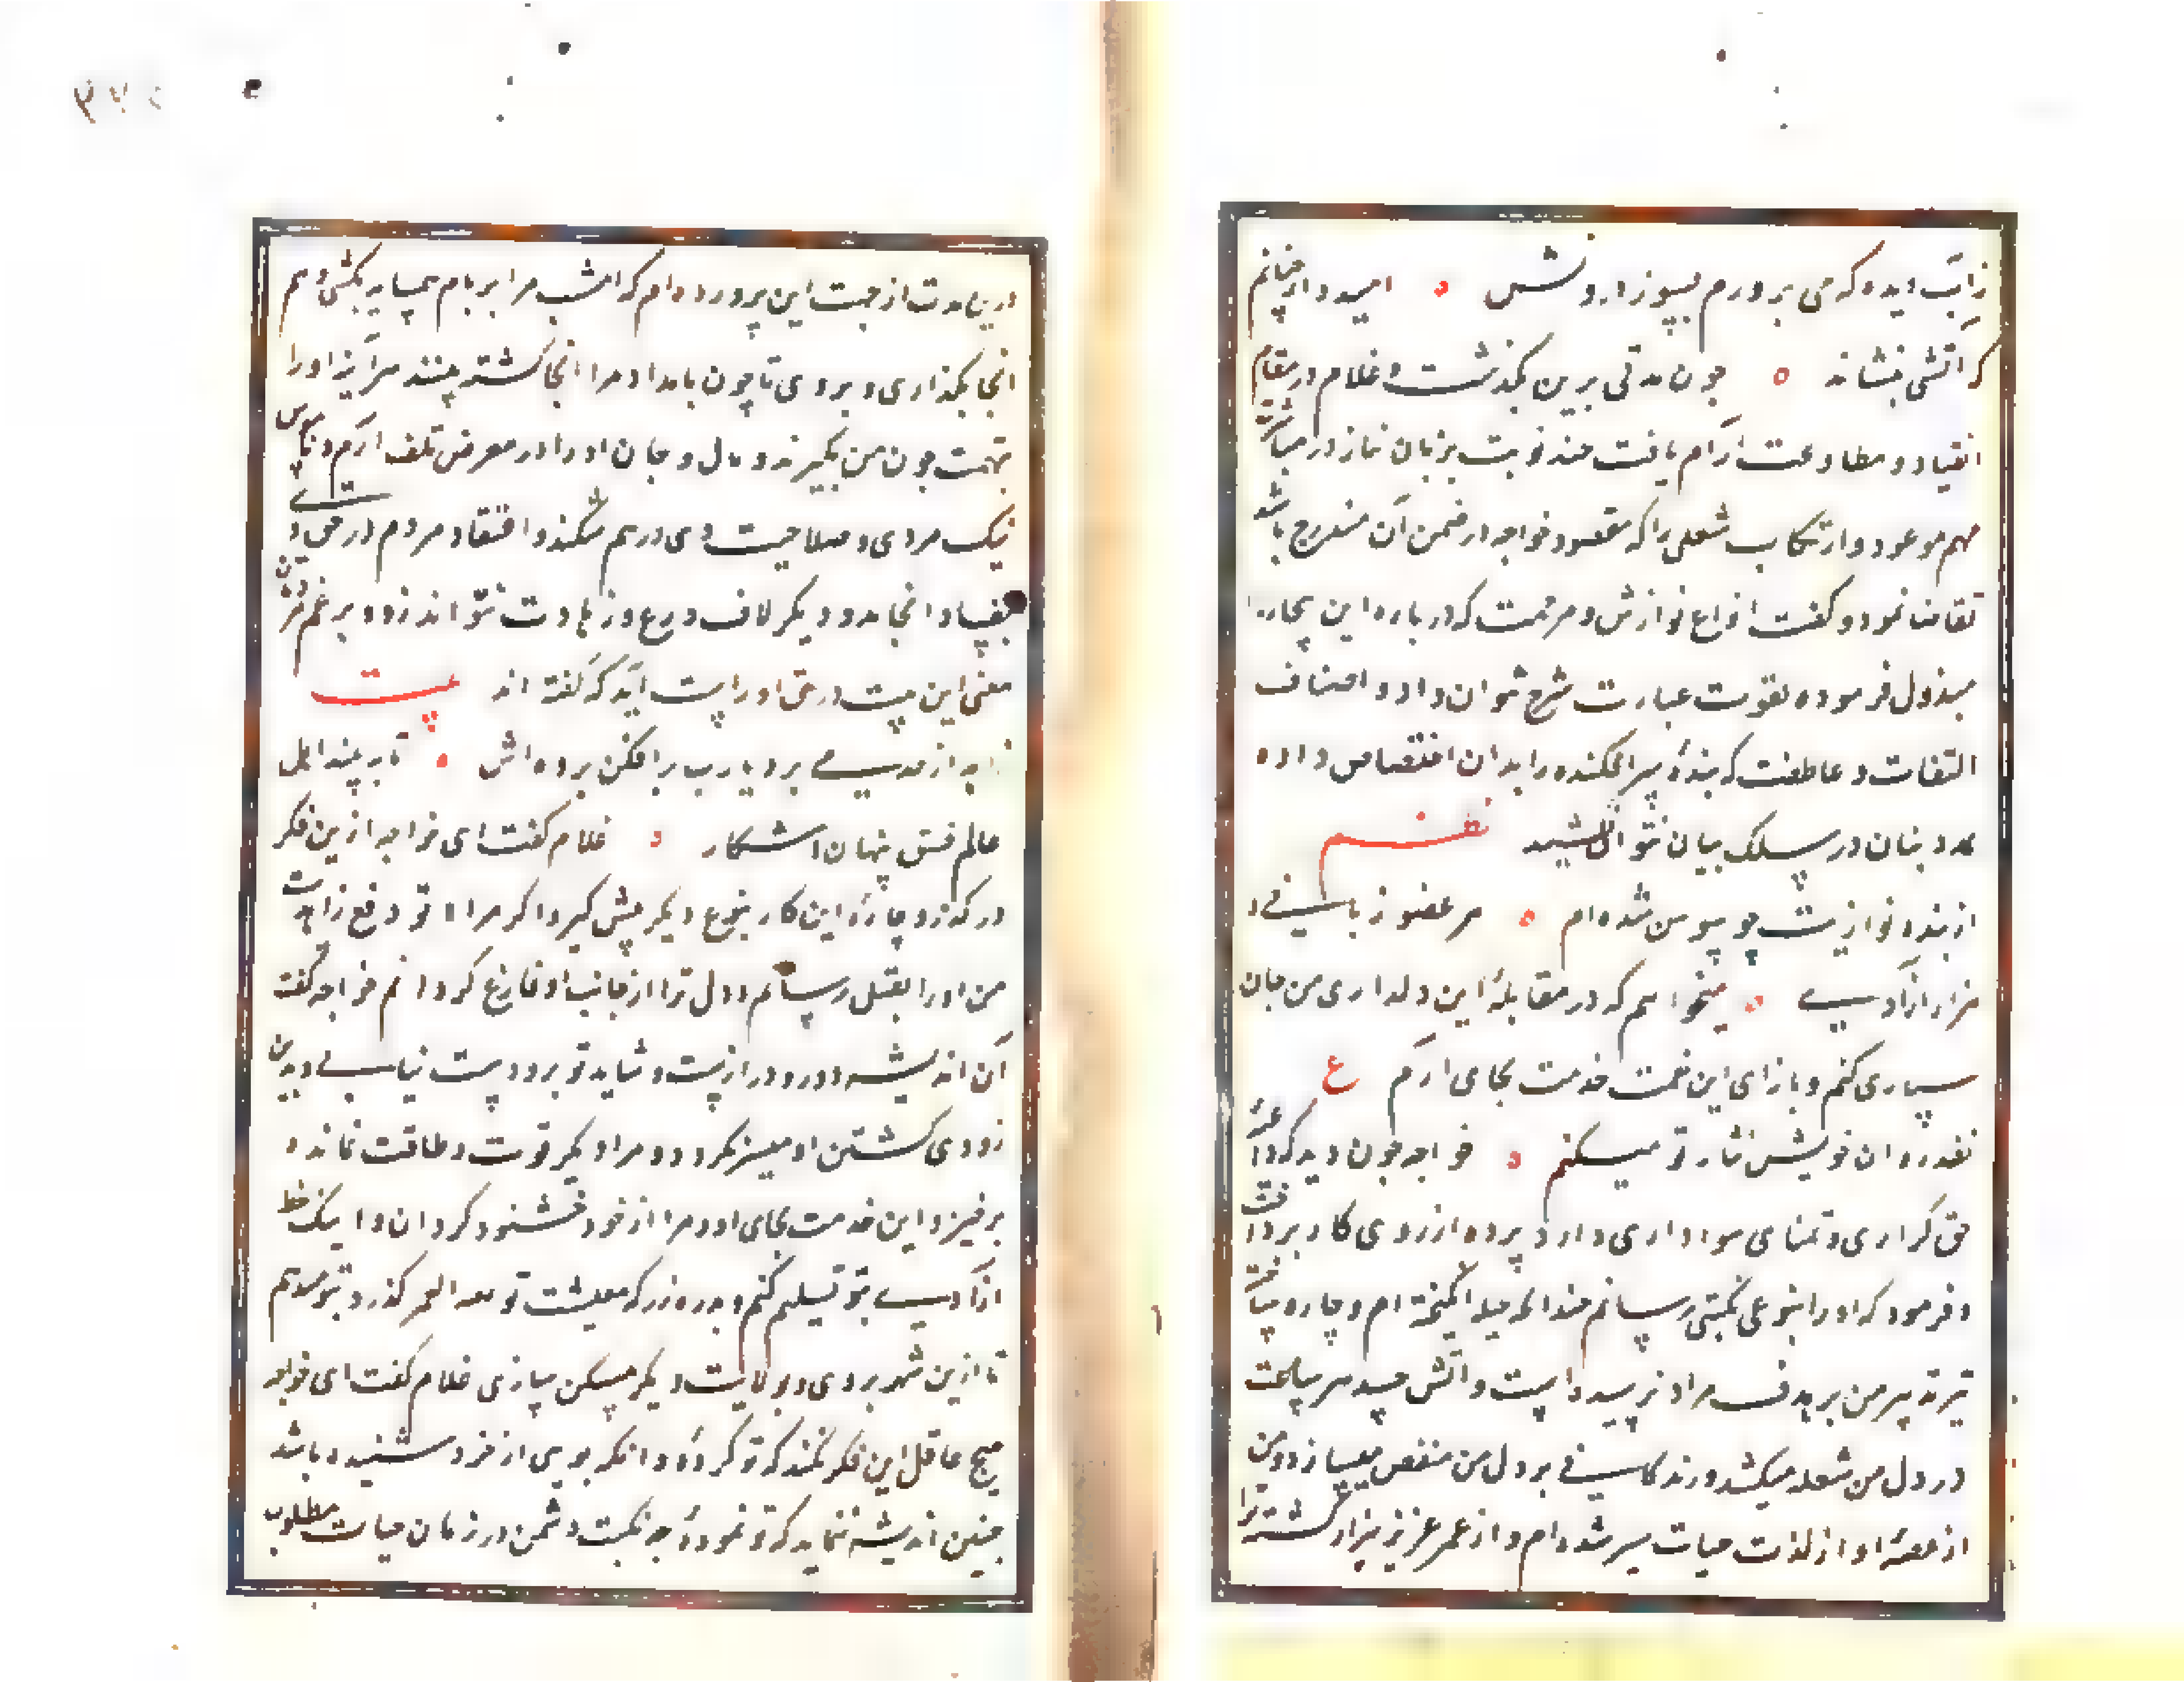 زآب دیده که می پرورم بسوز درونش ۰ امیدوار چنانم
که آتشی بنشاند ۰ چون مدتی برین بگذشت و غلام در مقام
انقیاد و مطاوعت آرام یافت چند نوبت بزبان نیاز در مباشرت
مهم موعود و ارتکاب شغلی را که مقصود خواجه در ضمن آن مندرج باشد
تقاضا نمود و گفت انواع نوازش و مرحمت که درباره این بیچاره
مبذول فرموده بقوت عبارت شرح نتوان داد و اصناف
التفات و عاطفت که بندهٔ سرافکنده را بدان اختصاص داده
بمدد بنان در سلک بیان نتوان کشید نظم
از بنده نوازیت چو سوسن شده ام ۰ هر عضو زبانی و
هزار آزادی ۰ میخواهم که در مقابلهٔ این دلداری من جان
سپاری کنم و بازای این نعمت خدمت بجای آرم ع
نقد روان خویش نثار تو میکنم ۰ خواجه چون دید که داعیهٔ
حق گزاری و تمنای هواداری دارد پرده از روی کار برداشت
و فرمود که او را بنوعی نکبتی رسانم چندانکه حیله انگیخته ام و چاره ساخته
تیر تدبیر من بر هدف مراد نرسیده است و آتش حسد هر ساعت
در دل من شعله میکشد و زندگانی بر دل من منغص میسازد و من
از غصهٔ او از لذت حیات سیر شده ام و از عمر عزیز بیزار گشته ترا
درین مدت از جهت این پرورده ام که امشب مرا بر بام همسایه بکشی و هم
آنجا بگذاری و بروی تا چون بامداد مرا آنجا کشته بینند هرآینه او را
بتهمت خون من بگیرند و مال و جان او را در معرض تلف آرم و ناموس
نیک مردی و صلاحیت وی درهم شکند و اعتقاد مردم در حق وی
بفساد انجامد و دیگر لاف ورع و زهادت نتواند زد و بر غم من
معنی این بیت در حق او راست آید که گفته اند بیت
زاهد از مدیبی برد یارب برافکن پرده اش ۰ تا ببینند اهل
عالم فسق پنهان آشکار ۰ غلام گفت ای خواجه ازین فکر
درگذر و چارهٔ این کار بنوع دیگر پیش گیر و اگر مراد تو دفع زاهد است
من او را بقتل رسانم و دل ترا از جانب او فارغ گردانم خواجه گفت
آن اندیشه دور و دراز است و شاید تو برو دست نیابی و بدین
زودی کشتن او میسر نگردد و مرا دیگر قوت و طاقت نمانده
برخیز و این خدمت بجای آور و مرا از خود خشنود گردان و اینک خط
آزادی بتو تسلیم کنم و بدره زر که معیشت تو مدت العمر گذرد بتو میدهم
تا ازین شهر بروی و بولایت دیگر مسکن سازی غلام گفت ای خواجه
هیچ عاقل این فکر نکند که تو کردهٔ و آنکه بویی از خرد شنیده باشد
چنین اندیشه ننماید که تو نمودهٔ چه نکبت دشمن در زمان حیات مطلوب